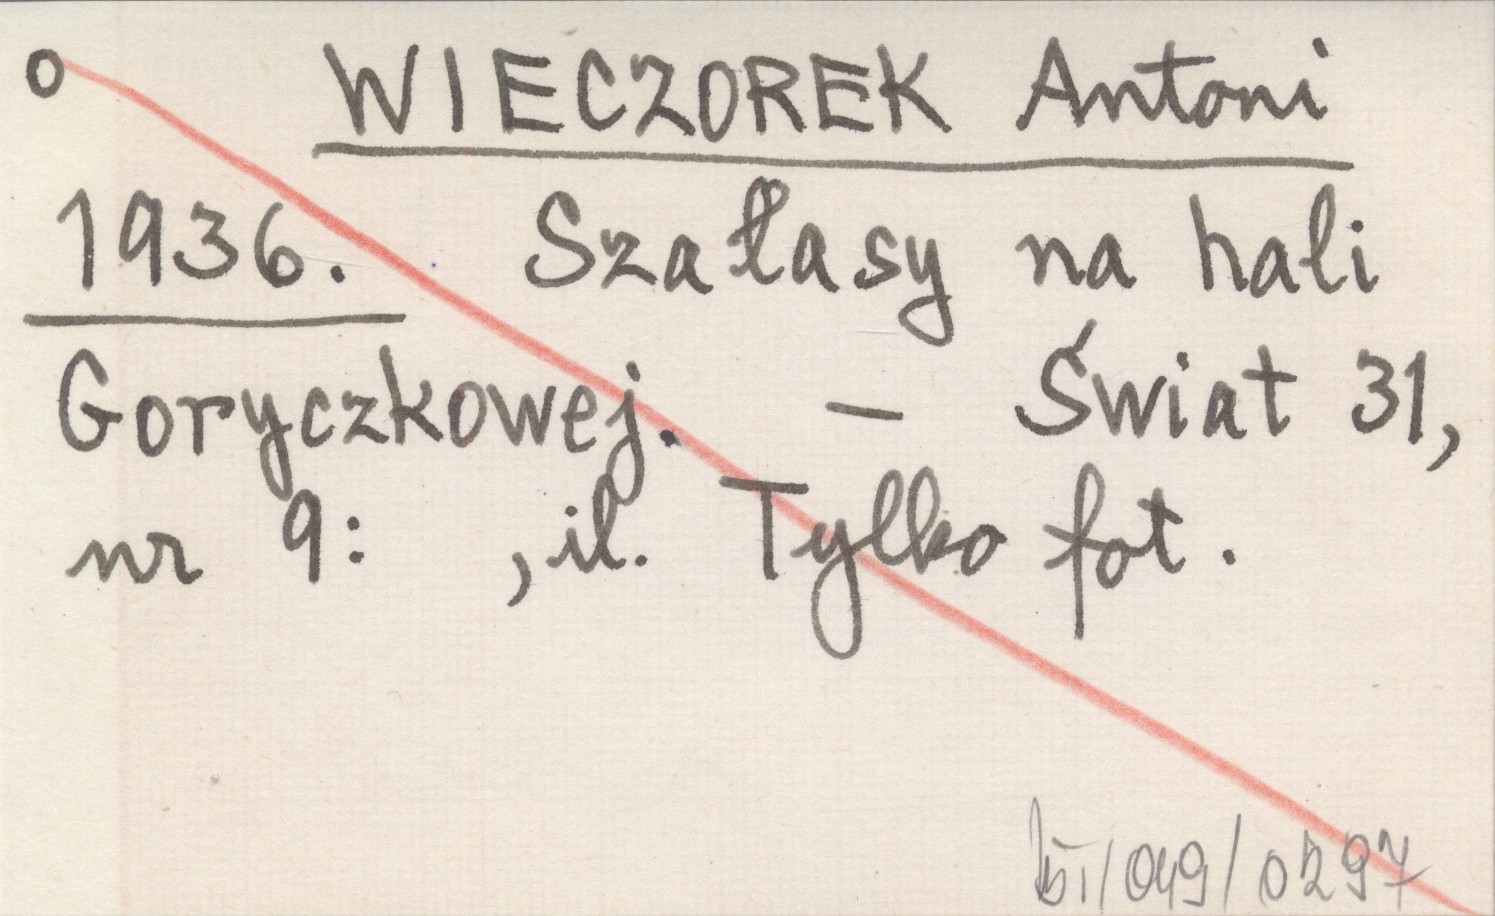 o WIECZOREK Antoni
1936. Szałasy na hali
Goryczkowej. – Świat 31,
nr 9: , il. Tylko fot.
/049/0297